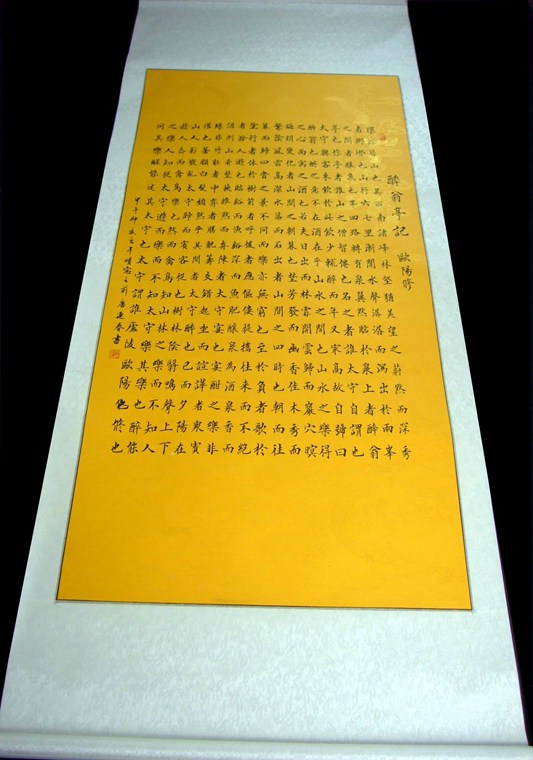 醉翁亭記 歐陽修
環滁皆山也其西南諸峰林壑猶美望之蔚然而深秀
者琅琊也山行六七里漸聞水聲潺潺而瀉出於兩峯
之間者釀泉也峯回路轉有亭翼然臨於泉上者醉翁
亭也作亭者誰山之僧智僊也名之者誰太守自謂也
太守與客來飲於此飲少輒醉而年又冣高故自號曰
醉翁也醉翁之意不在酒在乎山水之間也山水之樂得
之心而寓之酒也若夫日出而林霏開雲歸而巖穴暝
晦明變化者山間之朝暮也埜芳發而幽香佳木秀而
繁陰風霜高潔水落而石出者山間之四時也朝而往
暮而歸四時之景不同而樂亦無窮也至於負者歌於
塗行者休於樹前者呼後者應傴僂提攜往來而不絕
者滁人遊也臨谿而漁谿深而魚肥釀泉為酒泉香而
酒洌山肴埜蔌雜然而前陳者太守宴也宴酣之樂非
絲非竹射者中弈者勝觥籌交錯起坐而諠譁者衆賓
懽也蒼顏白髮頹然乎其間者太守醉也已而夕陽在
山人影散亂太守歸而賓客從也樹林陰翳鳴聲上下
遊人去而禽鳥樂也然而禽鳥知山林之樂而不知人
之樂人知從太守遊而樂而不知太守之樂其樂也醉能
同其樂醒能述其太守也太守謂誰廬陵歐陽修也
甲午仲 書